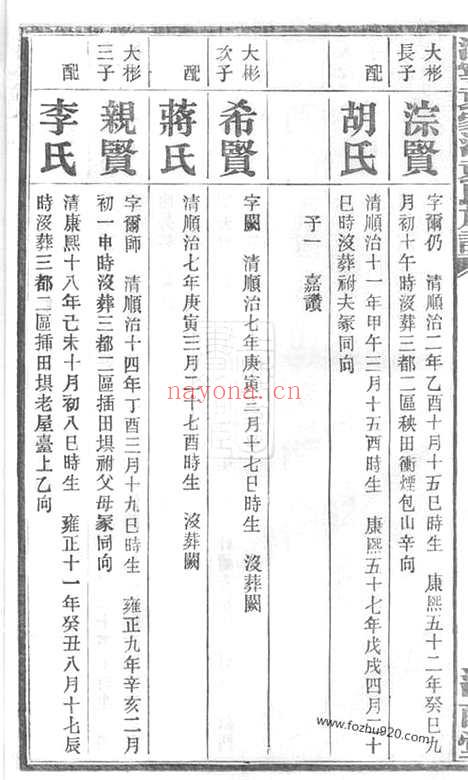 大彬長子
淙賢
字爾仍 清順治二年乙酉十月十五巳時生 康熙五十二年癸巳九
月初十午時沒葬三都二區秧田衝煙包山辛向
配
胡氏
清順治十一年甲午三月十五酉時生 康熙五十七年戊戌四月二十
巳時沒葬祔夫冢同向
子一 嘉讚
大彬次子
希賢
字闕 清順治七年庚寅三月十七巳時生 沒葬闕
配
蔣氏
清順治七年庚寅三月二十七酉時生 沒葬闕
大彬三子
親賢
字爾師 清順治十四年丁酉三月十九巳時生 雍正九年辛亥二月
初一申時沒葬三都二區插田垻祔父母冢同向
配
李氏
清康熙十八年己未十月初八巳時生 雍正十一年癸丑八月十七辰
時沒葬三都二區插田垻老屋臺上乙向
nayona.cn
www.fozhu920.com